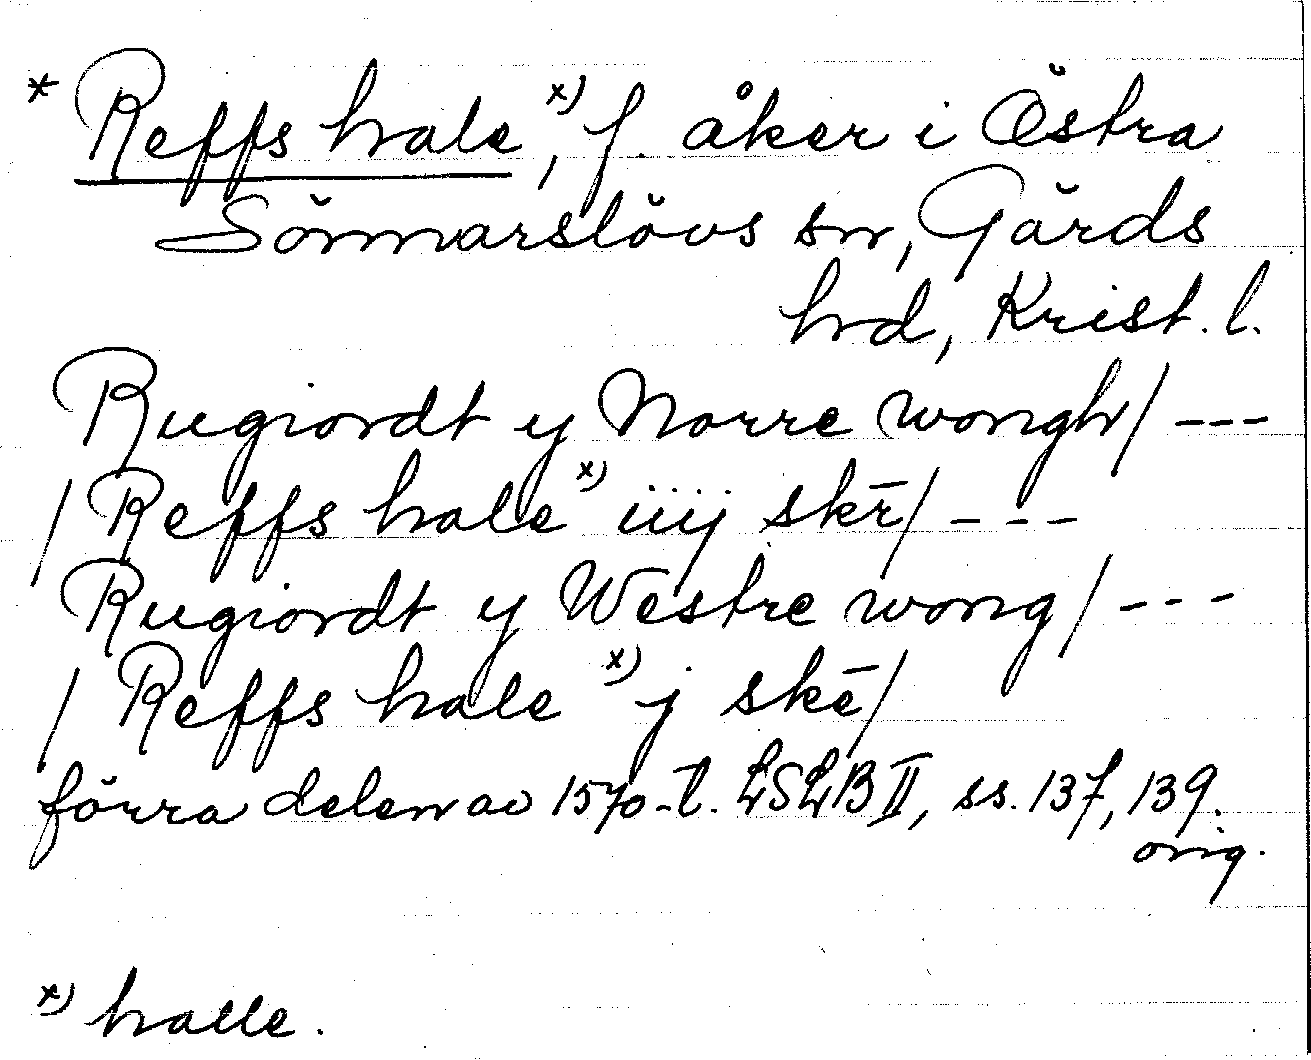 * Reffs hale,ˣ⁾ f. åker i Östra
Sönnarslövs sn, Gärds
hd, Krist. l.
Rugiordt y Norre wongh/ ---
/Reffs haleˣ⁾ iiij skē/ ---
Rugiordt y Westre wong/ ---
/ Reffs haleˣ⁾ j skē/
förra delen av 1570-t. LSLB II, ss. 137, 139.
orig.
ˣ⁾ halle.